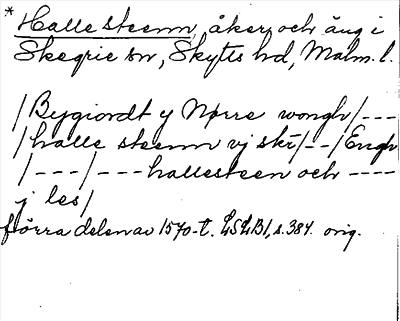 * Halle steenn, åker och äng i
Skegrie sn, Skytts hd, Malm. l.
/Bygiordt y Nørre wongh/---
/halle steenn vj skr/--/Engh
/---/---hallesteen och ----
j les/
förra delen av 1570-t. LSLB1, s. 384. orig.